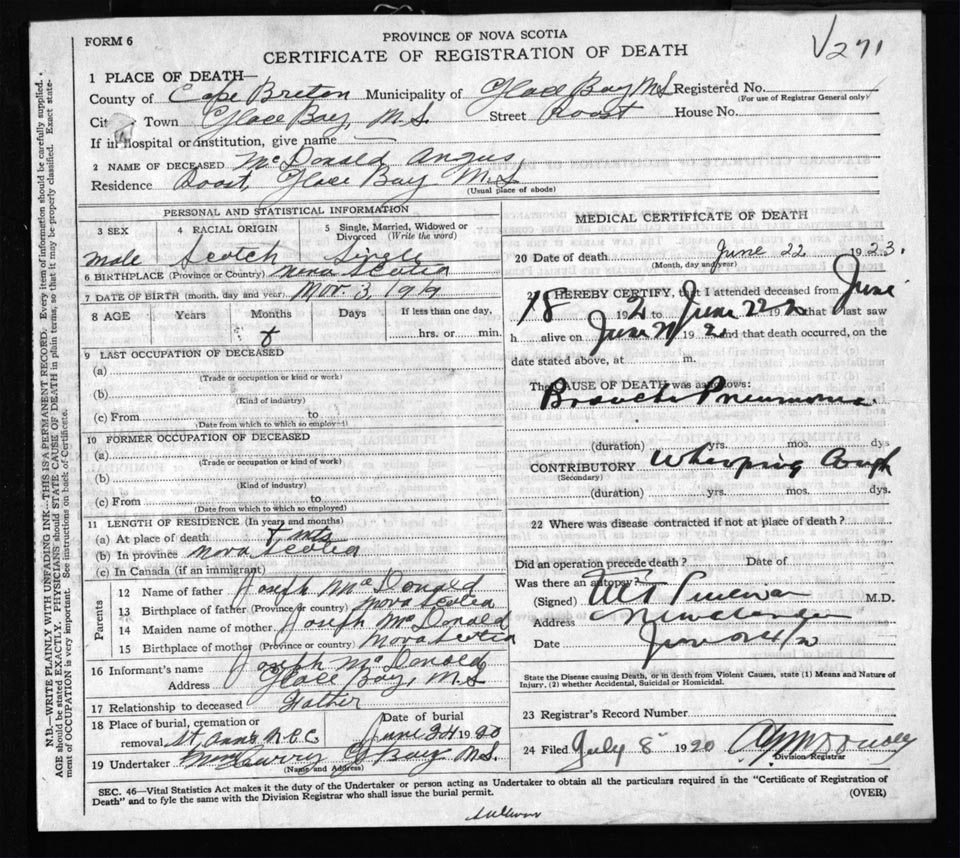 FORM 6
PROVINCE OF NOVA SCOTIA
CERTIFICATE OF REGISTRATION OF DEATH
V271
1 PLACE OF DEATH—
County of Cape Breton Municipality of Glace Bay N.S. Registered No.
(For use of Registrar General only)
City Town Glace Bay, N.S. Street Roost House No.
If in hospital or institution, give name
2 NAME OF DECEASED McDonald Angus
Residence Roost, Glace Bay N.S.
(Usual place of abode)
PERSONAL AND STATISTICAL INFORMATION
3 SEX 4 RACIAL ORIGIN 5 Single, Married, Widowed or Divorced (Write the word)
Male Scotch Single
6 BIRTHPLACE (Province or Country) Nova Scotia
7 DATE OF BIRTH (month, day and year) Nov. 3, 1919
8 AGE Years Months Days If less than one day,
hrs. or min.
9 LAST OCCUPATION OF DECEASED
(a)
(Trade or occupation or kind or work)
(b)
(Kind of industry)
(c) From to
(Date from which to which so employed)
10 FORMER OCCUPATION OF DECEASED
(a)
(Trade or occupation or kind of work)
(b)
(Kind of industry)
(c) From to
(Date from which to which so employed)
11 LENGTH OF RESIDENCE (In years and months)
(a) At place of death mts
(b) In province Nova Scotia
(c) In Canada (if an immigrant)
Parents
12 Name of father Joseph McDonald
13 Birthplace of father (Province or country) Nova Scotia
14 Maiden name of mother Joseph McDonald
15 Birthplace of mother (Province or country) Nova Scotia
16 Informant's name Joseph McDonald
Address Glace Bay, N.S.
17 Relationship to deceased Father
18 Place of burial, cremation or removal St Anns R.C.C Date of burial June 24 1920
19 Undertaker Curry G Bay N.S.
(Name and Address)
MEDICAL CERTIFICATE OF DEATH
20 Date of death June 22 1923.
(Month, day and year)
21 I HEREBY CERTIFY, that I attended deceased from June
18 192 to June 22 192 that I last saw
h alive on June 21 192 and that death occurred, on the
date stated above, at m.
The CAUSE OF DEATH was as follows:
Broncho Pneumonia
(duration) yrs. mos. dys
CONTRIBUTORY Whooping Cough
(Secondary)
(duration) yrs. mos. dys.
22 Where was disease contracted if not at place of death?
Did an operation precede death? Date of
Was there an autopsy?
(Signed) M.D.
Address
Date June
State the Disease causing Death, or in death from Violent Causes, state (1) Means and Nature of Injury, (2) whether Accidental, Suicidal or Homicidal.
23 Registrar's Record Number
24 Filed July 8 1920
Division Registrar
SEC. 46—Vital Statistics Act makes it the duty of the Undertaker or person acting as Undertaker to obtain all the particulars required in the "Certificate of Registration of
Death" and to fyle the same with the Division Registrar who shall issue the burial permit. (OVER)
N.B.—WRITE PLAINLY WITH UNFADING INK—THIS IS A PERMANENT RECORD. Every item of information should be carefully supplied.
AGE should be stated EXACTLY. PHYSICIANS should STATE CAUSE OF DEATH in plain terms, so that it may be properly classified. Exact statement
of OCCUPATION is very important. See instructions on back of Certificate.